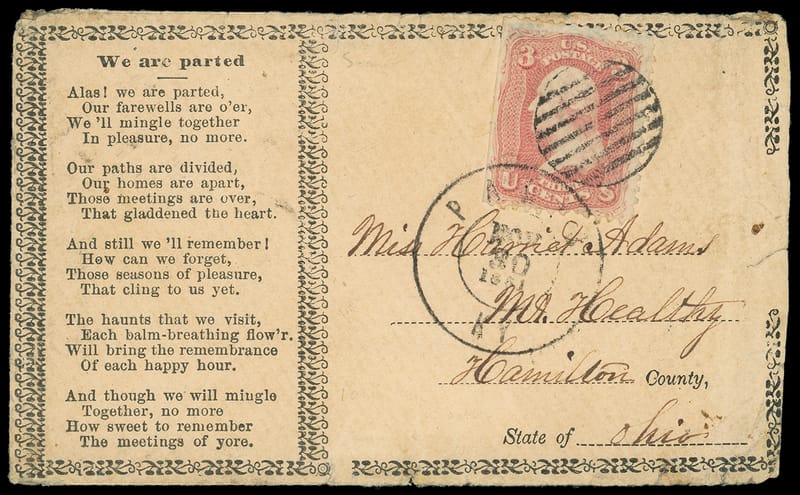 We are parted
Alas! we are parted,
Our farewells are o'er,
We 'll mingle together
In pleasure, no more.
Our paths are divided,
Our homes are apart,
Those meetings are over,
That gladdened the heart.
And still we 'll remember!
How can we forget,
Those seasons of pleasure,
That cling to us yet.
The haunts that we visit,
Each balm-breathing flow'r.
Will bring the remembrance
Of each happy hour.
And though we will mingle
Together, no more
How sweet to remember
The meetings of yore.
3 U.S. POSTAGE
THREE
U CENTS S
30
Miss Harriet Adams
Mt. Healthy
Hamilton County,
State of Ohio